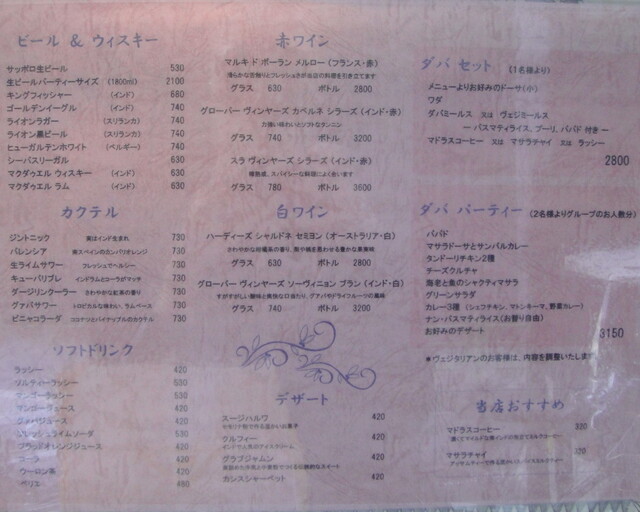 ビール & ウィスキー
サッポロ生ビール 530
生ビールパーティーサイズ (1800ml) 2100
キングフィッシャー (インド) 680
ゴールデンイーグル (インド) 740
ライオンラガー (スリランカ) 740
ライオン黒ビール (スリランカ) 740
ヒューガルテンホワイト (ベルギー) 740
シーバスリーガル 630
マクダゥエル ウィスキー (インド) 630
マクダゥエル ラム (インド) 630
カクテル
ジントニック 実はインド生まれ 730
バレンシア 南スペインのカンパリオレンジ 730
生ライムサワー フレッシュでヘルシー 730
キューバリブレ インドラムとコーラがマッチ 730
ダージリンクーラー さわやかな紅茶の香り 730
グァバサワー トロピカルな味わい、ラムベース 730
ピニャコラーダ ココナツとパイナップルのカクテル 730
ソフトドリンク
ラッシー 420
ソルティーラッシー 530
マンゴーラッシー 530
マンゴージュース 420
グァバジュース 420
フレッシュライムソーダ 530
ブラッドオレンジジュース 420
コーラ 420
ウーロン茶 420
ペリエ 480
赤ワイン
マルキ ド ボーラン メルロー (フランス・赤)
滑らかな舌触りとフレッシュさが当店の料理を引き立てます
グラス 630 ボトル 2800
グローバー ヴィンヤーズ カベルネ シラーズ (インド・赤)
力強い味わいとソフトなタンニン
グラス 740 ボトル 3200
スラ ヴィンヤーズ シラーズ (インド・赤)
グラス 780 ボトル 3600
白ワイン
ハーディーズ シャルドネ セミヨン (オーストラリア・白)
グラス 630 ボトル 2800
グローバー ヴィンヤーズ ソーヴィニョン ブラン (インド・白)
すがすがしい酸味と爽快な口当たり、グアバやドライフルーツの風味
グラス 740 ボトル 3200
デザート
スージハルワ 420
セモリナ粉で作る温かいお菓子
クルフィー 420
インドで人気のアイスクリーム
グラブジャムン 420
カシスシャーベット 420
ダバ セット (1名様より)
メニューよりお好みのドーサ(小)
ワダ
ダバミールス 又は ヴェジミールス
－ バスマティライス、プーリ、パパド 付き －
マドラスコーヒー 又は マサラチャイ 又は ラッシー
2800
ダバ パーティー (2名様よりグループのお人数分)
パパド
マサラドーサとサンバルカレー
タンドーリチキン2種
チーズクルチャ
海老と魚のシャクティマサラ
グリーンサラダ
カレー3種 (シェフチキン、マトンキーマ、野菜カレー)
ナン・バスマティライス(お替り自由)
お好みのデザート
3150
＊ヴェジタリアンのお客様は、内容を調整いたします
当店おすすめ
マドラスコーヒー 320
マサラチャイ 320